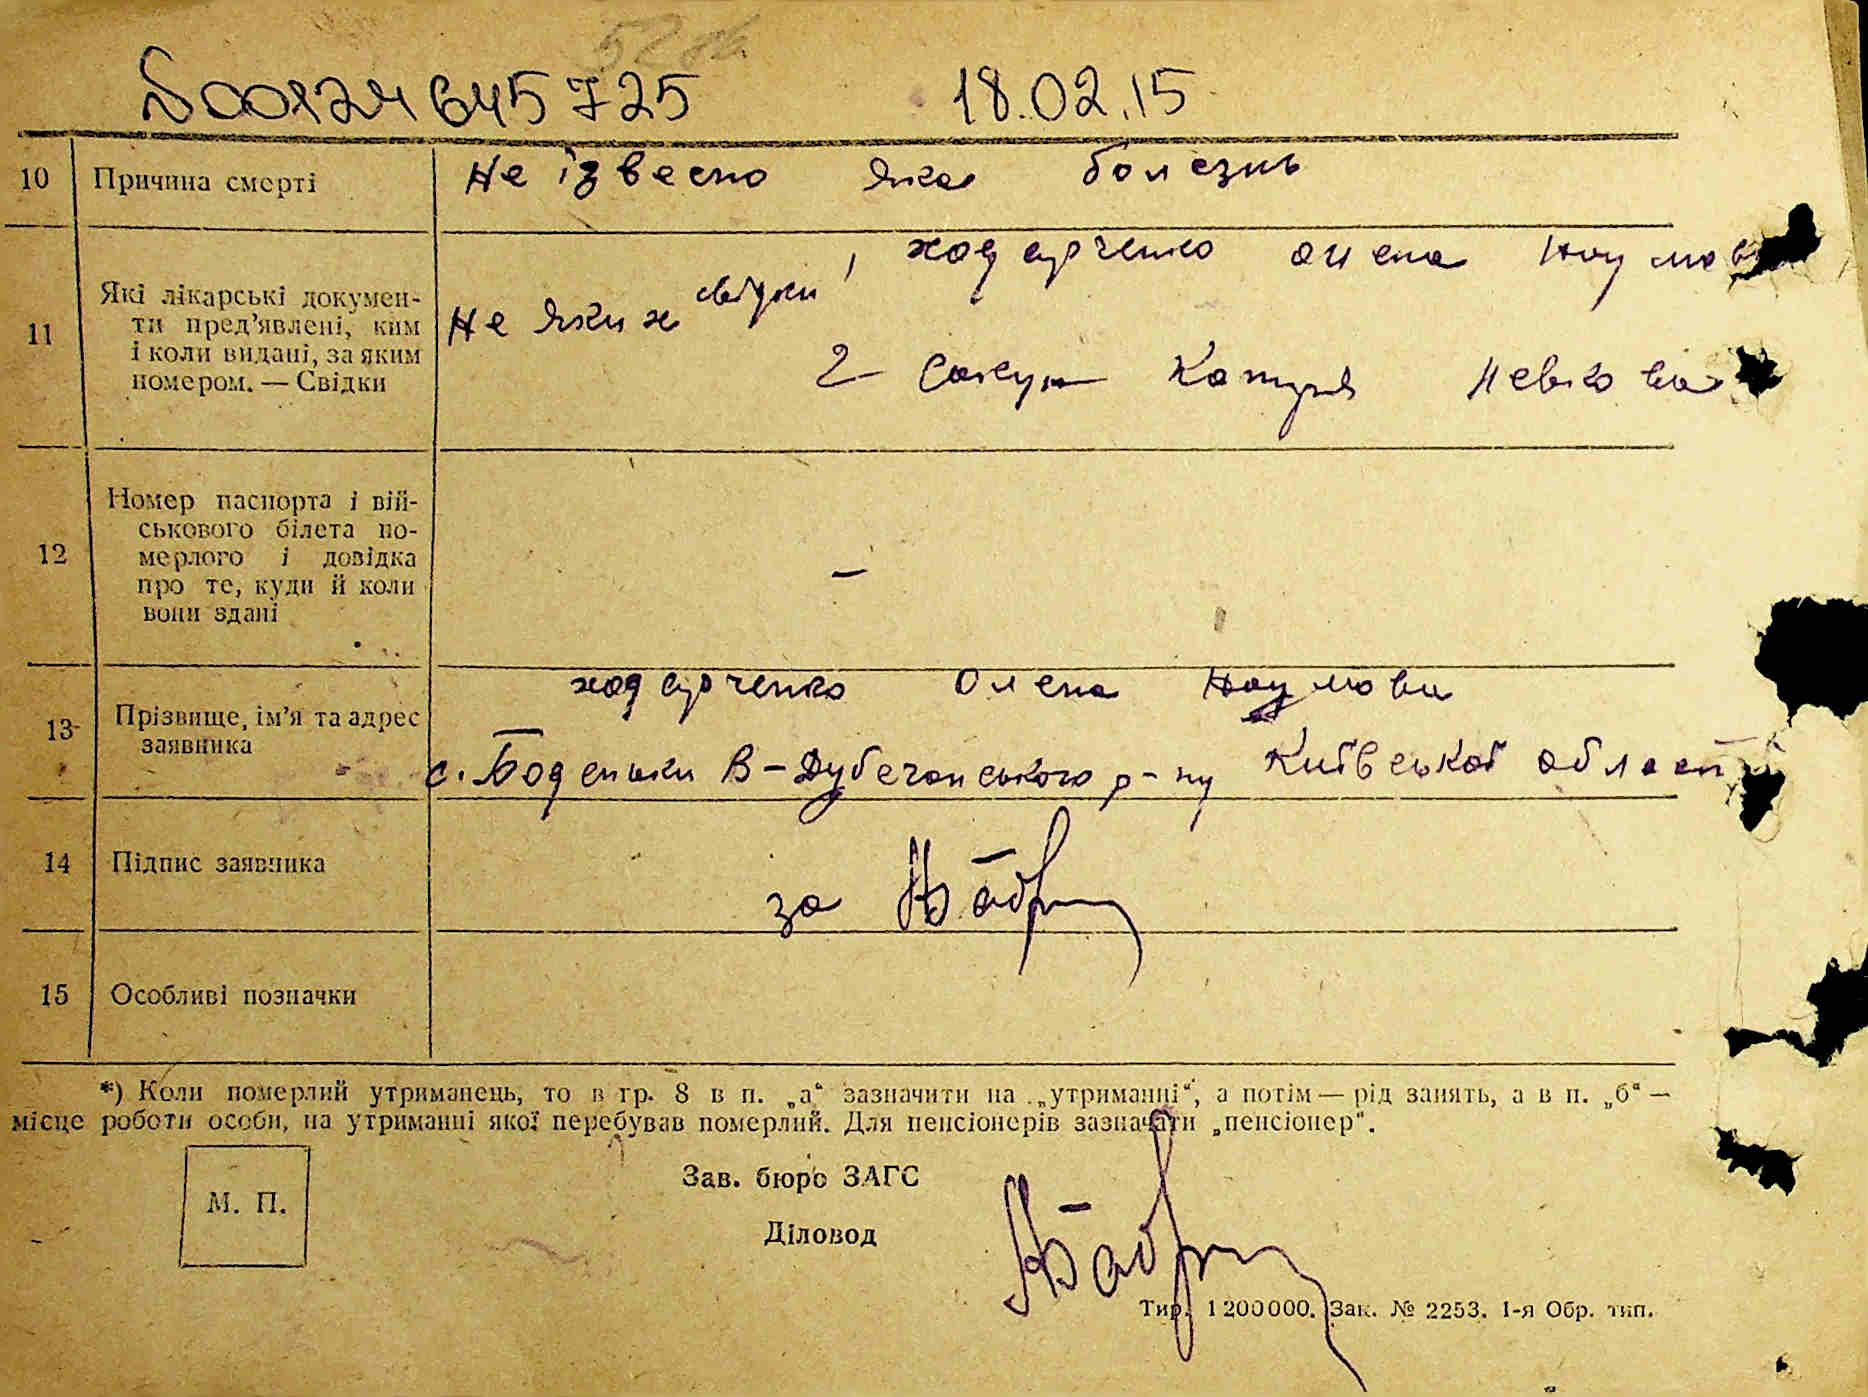 S00124645725 18.02.15
10 Причина смерті Не ізвесно яка болезнь
11 Які лікарські докумен-
ти пред'явлені, ким
і коли видані, за яким
номером. — Свідки
Не яких свідки 1 ходерченко олена Наумов
2 Катря
12 Номер паспорта і вій-
ськового білета по-
мерлого і довідка
про те, куди й коли
вони здані
–
13 Прізвище, ім'я та адрес
заявника
ходерченко Олена Наумови
с. Боденьки В-Дубечанського р-ну Київської област
14 Підпис заявника за
15 Особливі позначки
*) Коли померлий утриманець, то в гр. 8 в п. „а“ зазначити на „утриманні“, а потім — рід занять, а в п. „б“ —
місце роботи особи, на утриманні якої перебував померлий. Для пенсіонерів зазначати „пенсіонер“.
М. П.
Зав. бюро ЗАГС
Діловод
Тир. 1200000. Зак. № 2253. 1-я Обр. тип.